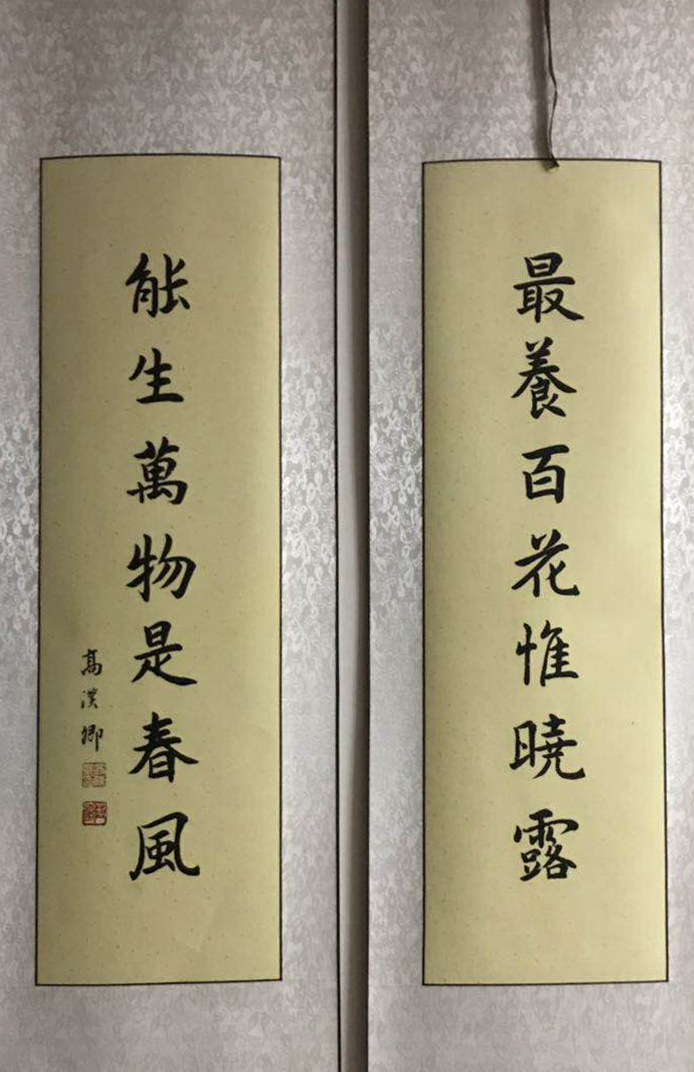 最養百花惟曉露
能生萬物是春風
高漢卿